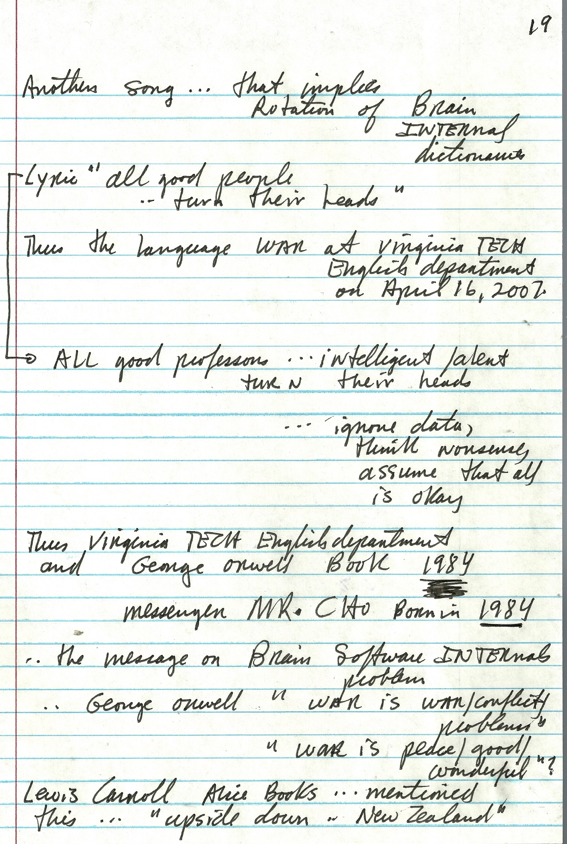 19
Another song ... that implies
Rotation of Brain
INTERNAL
dictionaries
Lyric " all good people
.. turn their heads "
Thus the language WAR at Virginia TECH
English department
on April 16, 2007.
ALL good professors ... intelligent talent
turn their heads
... ignore data,
think nonsense,
assume that all
is okay
Thus Virginia TECH English department
and George Orwell Book 1984
messenger MR. CHO Born in 1984
.. the message on Brain Software INTERNALS
problem
.. George Orwell " WAR is WAR/conflict/
problems"
" WAR is peace/good/
wonderful"?
Lewis Carroll Alice Books ... mentioned
this ... "upside down .. New Zealand"